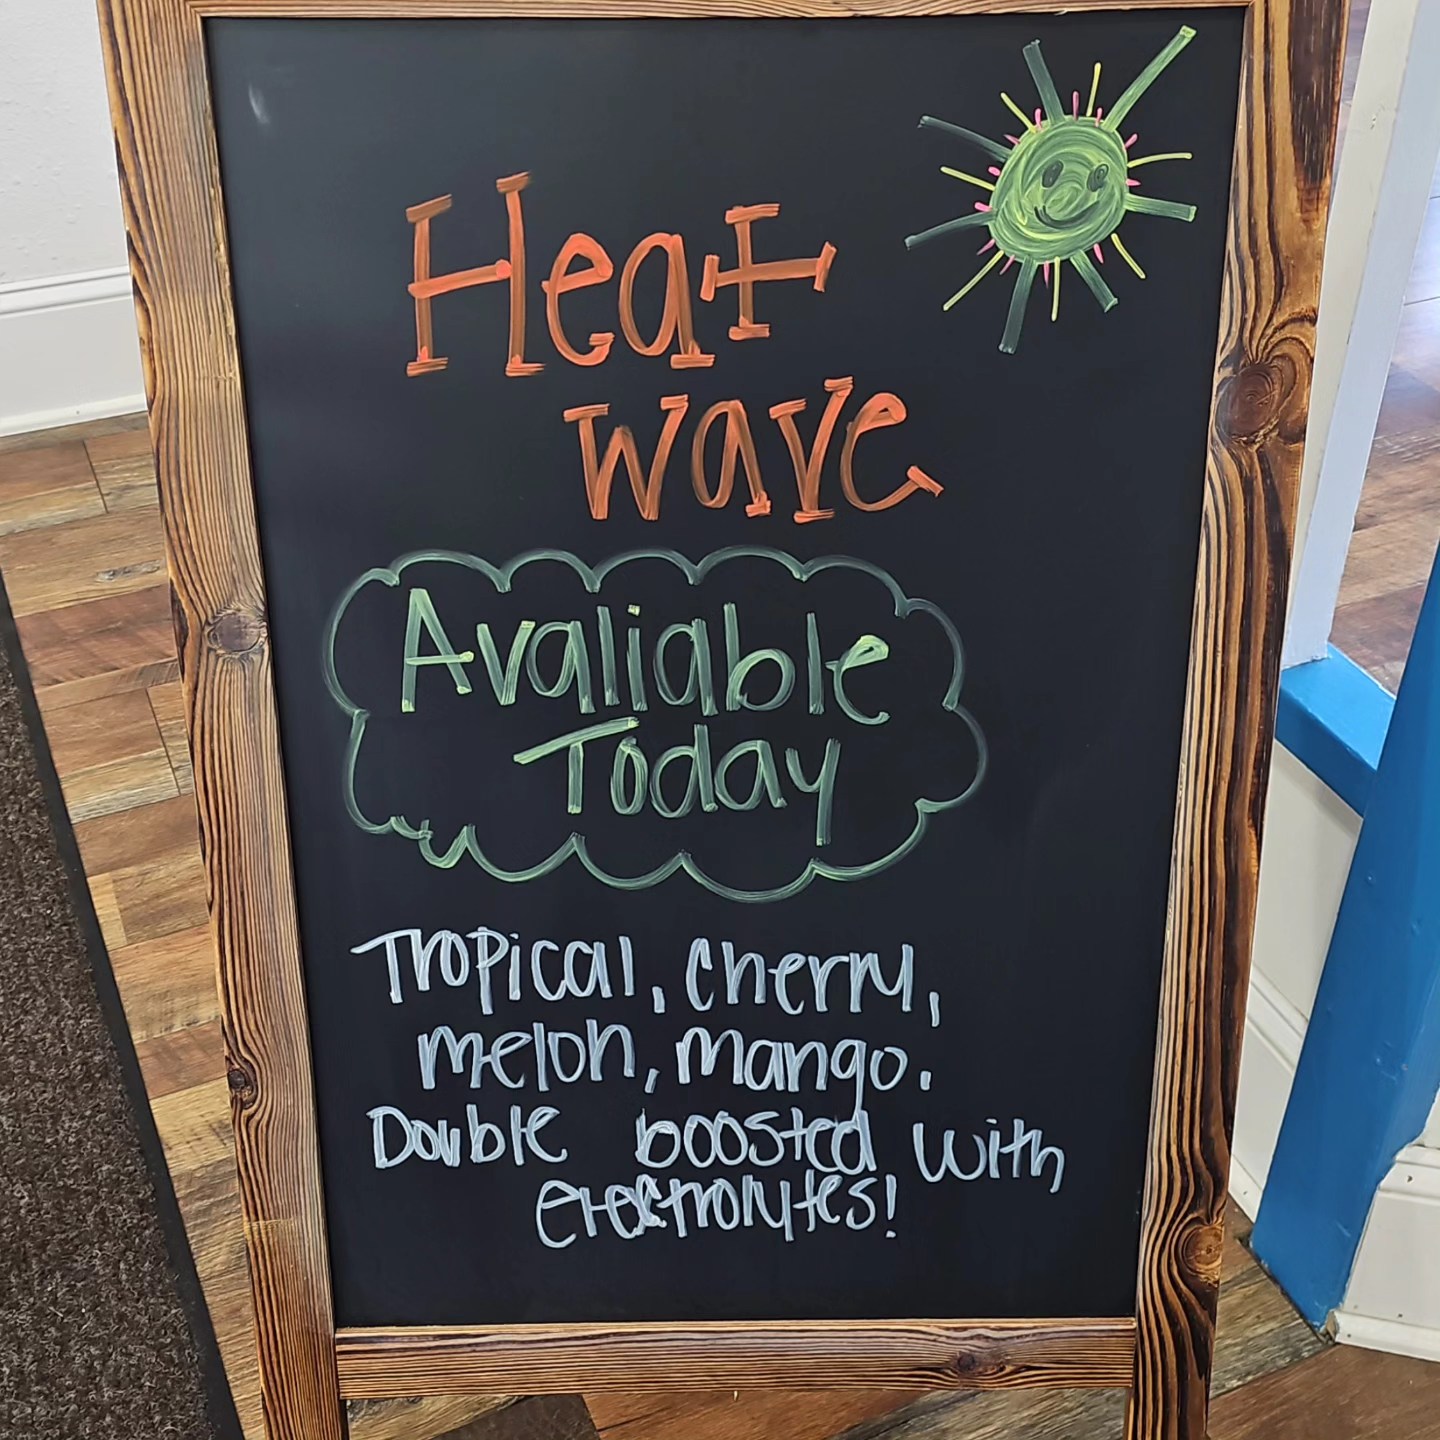 Heat
wave
Avaliable
Today
Tropical, cherry,
melon, mango.
Double boosted with
electrolytes!